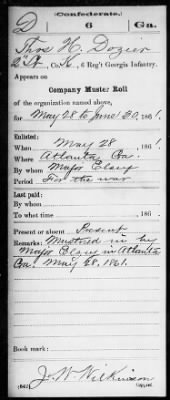 (Confederate.)
D 6 Ga.
Thos H. Dozier
Co. K, 6 Reg't Georgia Infantry.
Appears on
Company Muster Roll
of the organization named above,
for May 28 to June 30, 1861.
Enlisted:
When May 28, 1861
Where Atlanta, Ga.
By whom Major Clay
Period For the war
Last paid:
By whom
To what time , 186 .
Present or absent Present
Remarks: Mustered in by
Major Clay in Atlanta
Ga. May 28, 1861.
Book mark:
J. W. Wilkinson
(642) Copyist.